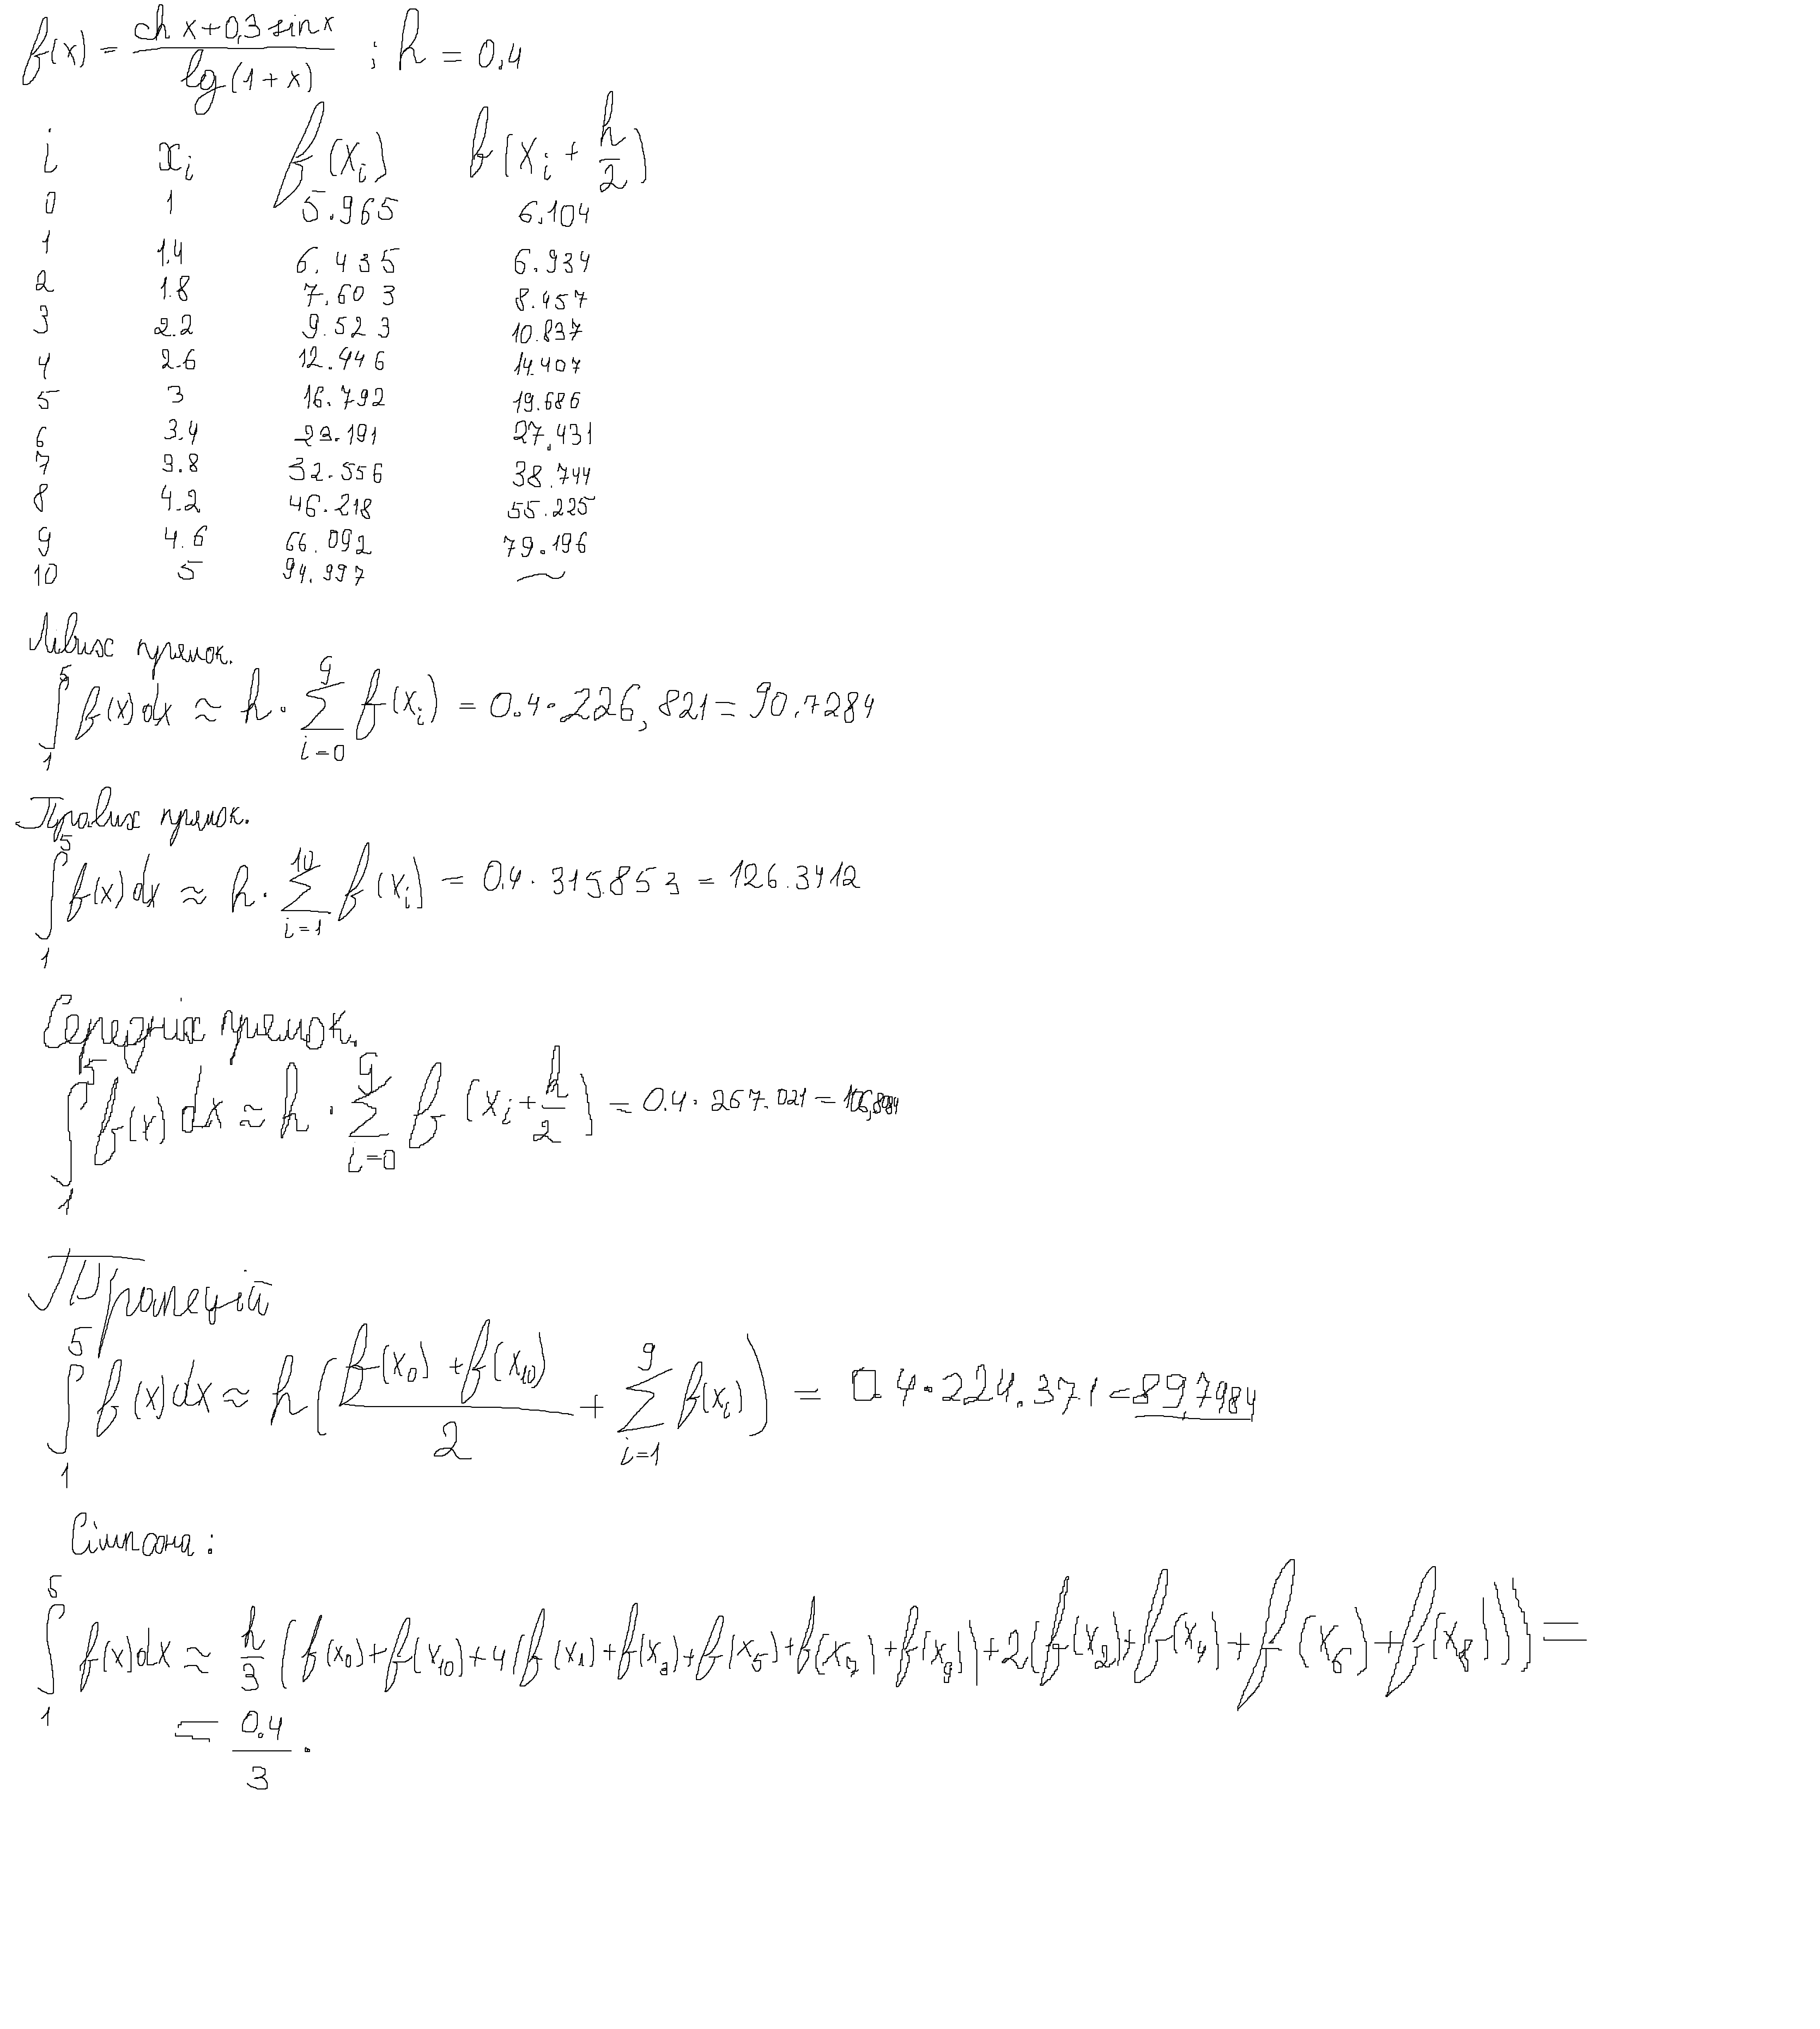 f(x) = (ch x + 0,3 sin x) / lg(1 + x) ; h = 0.4
i xᵢ f(xᵢ) f(xᵢ + h/2)
0 1 5.965 6.104
1 1.4 6.435 6.934
2 1.8 7.603 8.457
3 2.2 9.523 10.837
4 2.6 12.446 14.407
5 3 16.792 19.686
6 3.4 23.191 27,431
7 3.8 32.556 38.744
8 4.2 46.218 55.225
9 4.6 66.092 79.196
10 5 94.997 ~
Лівих прямок.
∫₁⁵ f(x)dx ≈ h · Σᵢ₌₀⁹ f(xᵢ) = 0.4 · 226,821 = 90.7284
Правих прямок.
∫₁⁵ f(x)dx ≈ h · Σᵢ₌₁¹⁰ f(xᵢ) = 0.4 · 315.853 = 126.3412
Середніх прямок.
∫₁⁵ f(x)dx ≈ h · Σᵢ₌₀⁹ f(xᵢ + h/2) = 0.4 · 267.021 = 106,8084
Трапецій
∫₁⁵ f(x)dx ≈ h((f(x₀) + f(x₁₀))/2 + Σᵢ₌₁⁹ f(xᵢ)) = 0.4 · 224.371 = 89,7484
Сімпсона:
∫₁⁵ f(x)dx ≈ h/3 (f(x₀) + f(x₁₀) + 4(f(x₁) + f(x₃) + f(x₅) + f(x₇) + f(x₉)) + 2(f(x₂) + f(x₄) + f(x₆) + f(x₈))) =
= 0.4/3 ·